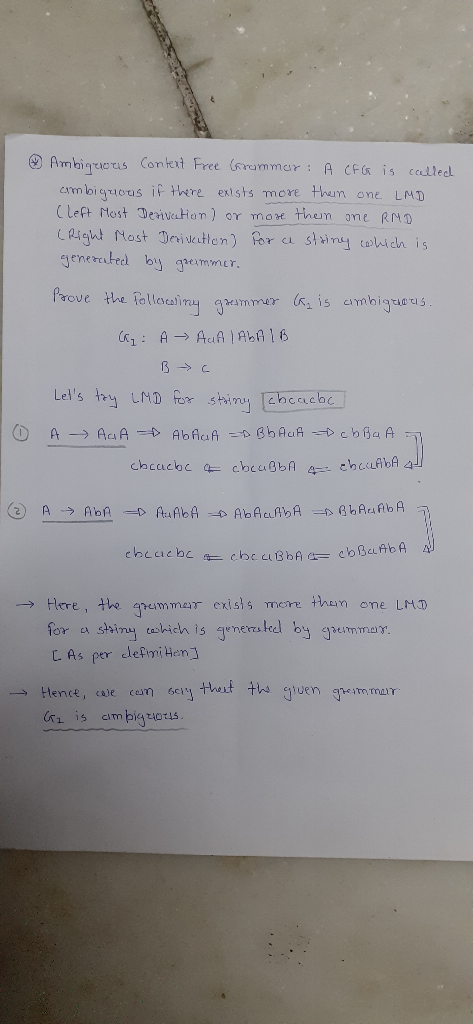 * Ambiguous Context Free Grammar : A CFG is called
ambiguous if there exists more than one LMD
(Left Most Derivation) or more than one RMD
(Right Most Derivation) for a string which is
generated by grammer.
Prove the following grammer G₁ is ambiguous.
G₁ : A → AaA | AbA | B
B → c
Let's try LMD for string cbcacbc
① A → AaA ⇒ AbAaA ⇒ BbAaA ⇒ cbBaA
cbcacbc ⇐ cbcaBbA ⇐ cbcaAbA
② A → AbA ⇒ AaAbA ⇒ AbAaAbA ⇒ BbAaAbA
cbcacbc ⇐ cbcaBbA ⇐ cbBaAbA
→ Here, the grammar exists more than one LMD
for a string which is generated by grammer.
[ As per definition ]
→ Hence, we can say that the given grammar
G₁ is ambiguous.